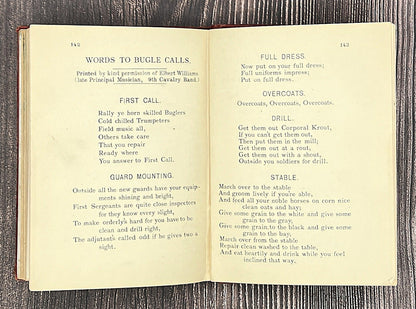 142
WORDS TO BUGLE CALLS.
Printed by kind permission of Elbert Williams
(late Principal Musician, 9th Cavalry Band.)
FIRST CALL.
Rally ye born skilled Buglers
Cold chilled Trumpeters
Field music all,
Others take care
That you repair
Ready where
You answer to First Call.
GUARD MOUNTING.
Outside all the new guards have your equip-
ments shining and bright,
First Sergeants are quite close inspectors
for they know every slight,
To make orderly's hard for you have to be
clean and drill right,
The adjutants called odd if he gives two a
sight.
143
FULL DRESS.
Now put on your full dress;
Full uniforms impress;
Put on full dress.
OVERCOATS.
Overcoats, Overcoats, Overcoats.
DRILL.
Get them out Corporal Krout,
If you can't get them out,
Then put them in the mill;
Get them out at a rout,
Get them out with a shout,
Outside you soldiers for drill.
STABLE.
March over to the stable
And groom lively if you're able,
And feed all your noble horses on corn nice
clean oats and hay;
Give some grain to the white and give some
grain to the gray,
Give some grain to the black and give some
grain to the bay,
March over from the stable
Repair clean washed to the table,
And eat heartily and drink while you feel
inclined that way.